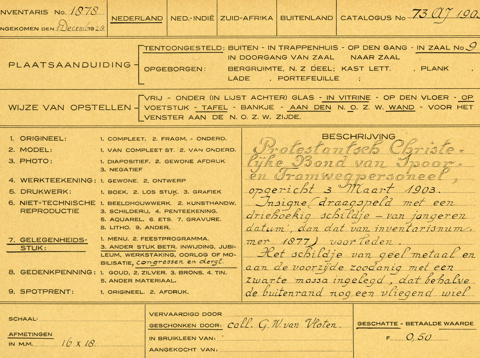 INVENTARIS No. 1878
NEDERLAND
NED.-INDIË
ZUID-AFRIKA
BUITENLAND
CATALOGUS No. 73 aj 1903
NGEKOMEN DEN December 1929
PLAATSAANDUIDING -
TENTOONGESTELD: BUITEN - IN TRAPPENHUIS - OP DEN GANG - IN ZAAL No 9
IN DOORGANG VAN ZAAL NAAR ZAAL
OPGEBORGEN: BERGRUIMTE, N. Z DEEL; KAST LETT. , PLANK ,
LADE , PORTEFEUILLE ;
WIJZE VAN OPSTELLEN -
VRIJ - ONDER (IN LUCHT ACHTER) GLAS - IN VITRINE - OP DEN VLOER - OP
VOETSTUK - TAFEL - BANKJE - AAN DEN N. O. Z. W. WAND - VOOR HET
VENSTER AAN DE N. O. Z. W. ZIJDE.
1. ORIGINEEL: 1. COMPLEET. 2. FRAGM. - ONDERD.
2. MODEL: 1. VAN COMPLEET ST. 2. VAN ONDERD.
3. PHOTO: 1. DIAPOSITIEF. 2. GEWONE AFDRUK
3. NEGATIEF
4. WERKTEEKENING: 1. GEWONE. 2. ONTWERP
5. DRUKWERK: 1. BOEK. 2. LOS STUK. 3. GRAFIEK
6. NIET-TECHNISCHE REPRODUCTIE
1. BEELDHOUWWERK. 2. KUNSTHANDW.
3. SCHILDERIJ. 4. PENTEEKENING.
5. AQUAREL. 6. ETS. 7. GRAVURE.
8. LITHO. 9. ANDER.
7. GELEGENHEIDS-STUK:
1. MENU. 2. FEESTPROGRAMMA.
3. ANDER STUK BETR. INWIJDING, JUBI-
LEUM, WERKSTAKING, OORLOG OF MO-
BILISATIE, congressen en dergl.
8. GEDENKPENNING: 1. GOUD, 2. ZILVER. 3. BRONS. 4. TIN.
5. ANDER MATERIAAL.
9. SPOTPRENT: 1. ORIGINEEL. 2. AFDRUK.
BESCHRIJVING
Protestantsch Christe-
lijke Bond van Spoor-
en Tramwegpersoneel,
opgericht 3 Maart 1903.
Insigne (draagspeld met een
driehoekig schildje - van jongeren
datum, dan dat van inventarisnum-
mer 1877) voor leden.
Het schildje van geel metaal en
aan de voorzijde zoodanig met een
zwarte massa ingelegd, dat behalve
de buitenrand nog een vliegend wiel
SCHAAL:
AFMETINGEN
IN M.M. 16 x 18
VERVAARDIGD DOOR
GESCHONKEN DOOR: coll. G. W. van Vloten.
IN BRUIKLEEN VAN:
AANGEKOCHT VAN:
GESCHATTE - BETAALDE WAARDE
F 0,50